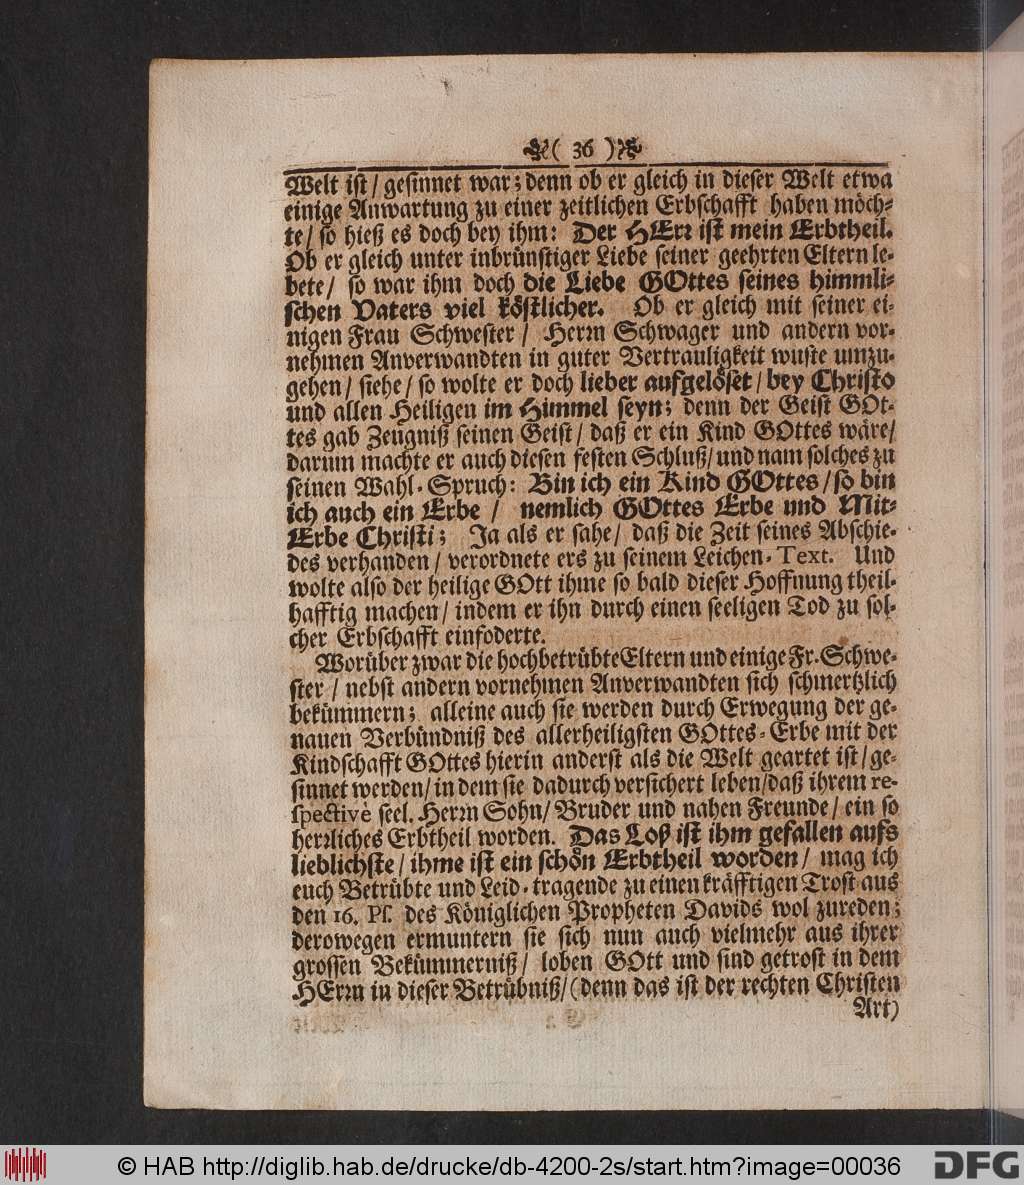 ( 36 )
Welt ist / gesinnet war; denn ob er gleich in dieser Welt etwa
einige Anwartung zu einer zeitlichen Erbschafft haben möch-
te / so hieß es doch bey ihm: Der HErr ist mein Erbtheil.
Ob er gleich unter inbrünstiger Liebe seiner geehrten Eltern le-
bete / so war ihm doch die Liebe GOttes seines himmli-
schen Vaters viel köstlicher. Ob er gleich mit seiner ei-
nigen Frau Schwester / Herrn Schwager und andern vor-
nehmen Anverwandten in guter Vertrauligkeit wuste umzu-
gehen / siehe / so wolte er doch lieber aufgelöset / bey Christo
und allen Heiligen im Himmel seyn; denn der Geist GOt-
tes gab Zeugniß seinen Geist / daß er ein Kind GOttes wäre /
darum machte er auch diesen festen Schluß / und nam solches zu
seinen Wahl-Spruch: Bin ich ein Kind GOttes / so bin
ich auch ein Erbe / nemlich GOttes Erbe und Mit-
Erbe Christi; Ja als er sahe / daß die Zeit seines Abschie-
des verhanden / verordnete ers zu seinem Leichen-Text. Und
wolte also der heilige GOtt ihme so bald dieser Hoffnung theil-
hafftig machen / indem er ihn durch einen seeligen Tod zu sol-
cher Erbschafft einfoderte.
Worüber zwar die hochbetrübte Eltern und einige Fr. Schwe-
ster / nebst andern vornehmen Anverwandten sich schmertzlich
bekümmern; alleine auch sie werden durch Erwegung der ge-
nauen Verbündniß des allerheiligsten GOttes-Erbe mit der
Kindschafft GOttes hierin anderst als die Welt geartet ist / ge-
sinnet werden / in dem sie dadurch versichert leben / daß ihrem re-
spectivè seel. Herrn Sohn / Bruder und nahen Freunde / ein so
herrliches Erbtheil worden. Das Loß ist ihm gefallen aufs
lieblichste / ihme ist ein schön Erbtheil worden / mag ich
euch Betrübte und Leid-tragende zu einen kräfftigen Trost aus
den 16. Ps. des Königlichen Propheten Davids wol zureden;
derowegen ermuntern sie sich nun auch vielmehr aus ihrer
grossen Bekümmerniß / loben GOtt und sind getrost in dem
HErrn in dieser Betrübniß / (denn das ist der rechten Christen
Art)
© HAB http://diglib.hab.de/drucke/db-4200-2s/start.htm?image=00036
DFG